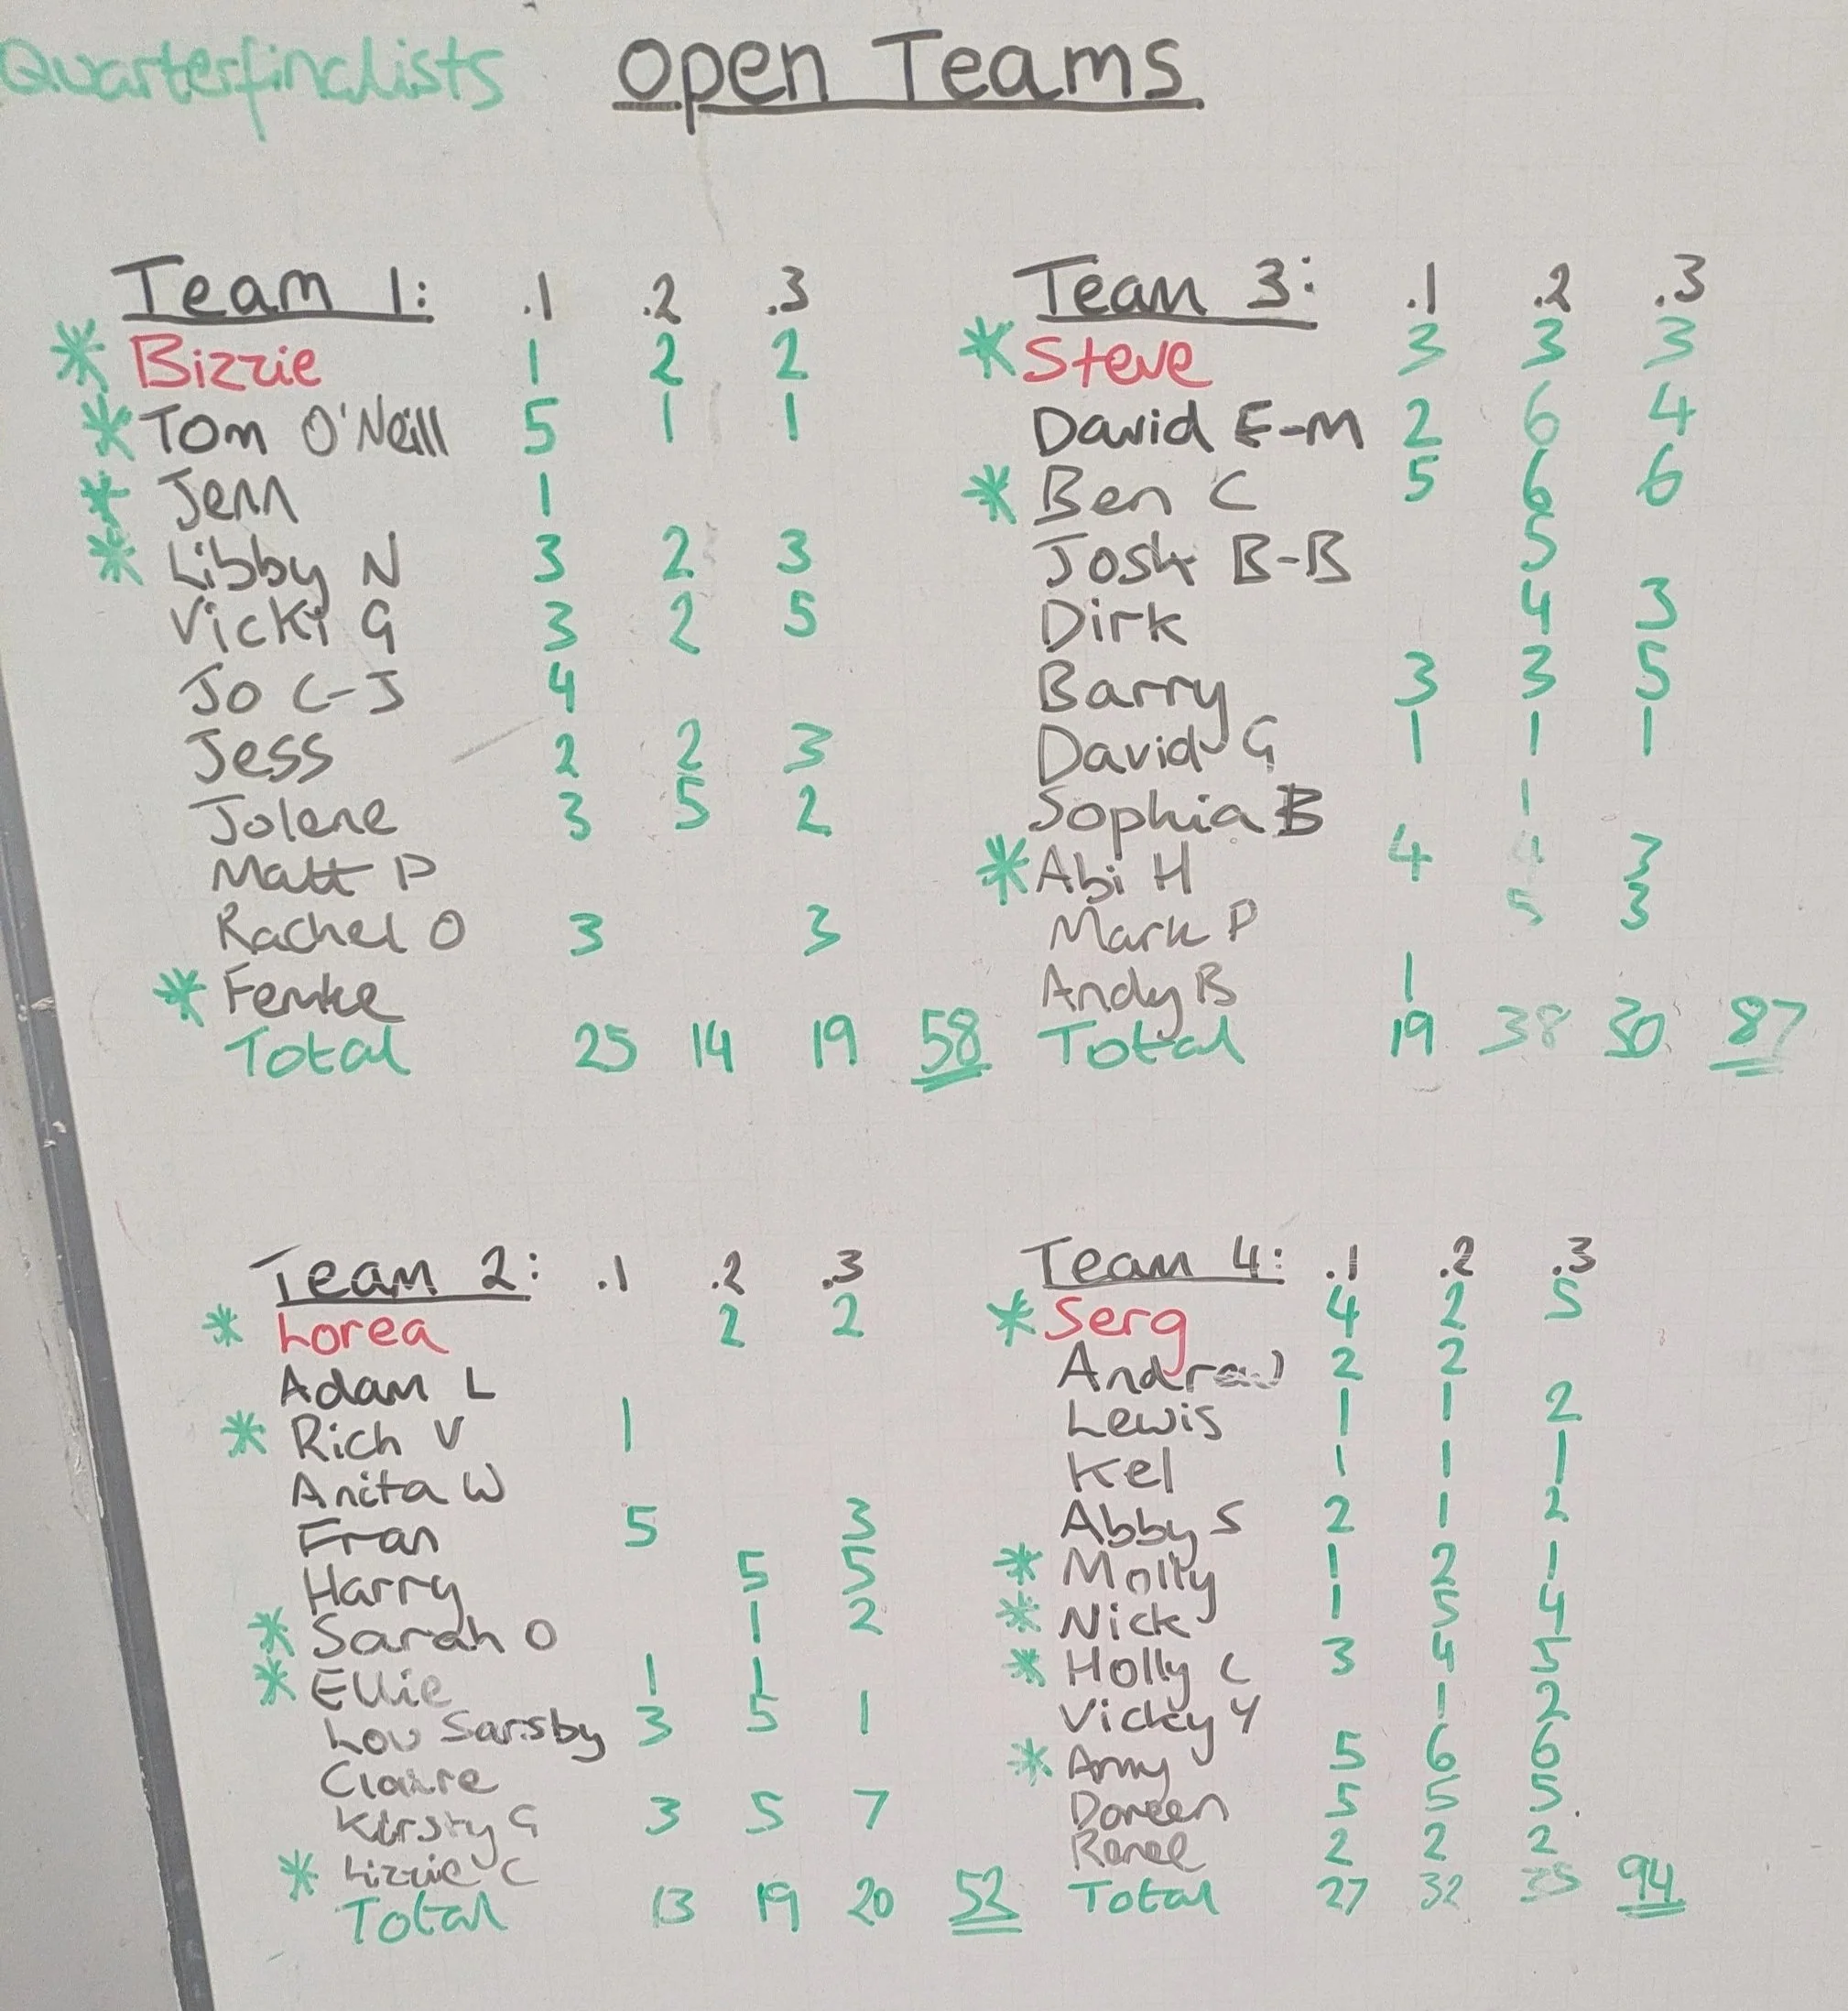 Quarterfinalists Open Teams
Team 1: .1 .2 .3
* Bizzie 1 2 2
* Tom O'Neill 5 1 1
* Jenn 1
* Libby N 3 2 3
Vicki G 3 2 5
Jo C-J 4
Jess 2 2 3
Jolene 3 5 2
Matt P
Rachel O 3 3
* Femke
Total 25 14 19 58
Team 3: .1 .2 .3
* Steve 3 3 3
David E-M 2 6 4
* Ben C 5 6 6
Josh B-B 5
Dirk 4 3
Barry 3 3 5
David G 1 1 1
Sophia B 1
* Abi H 4 4 3
Mark P 5 3
Andy B 1
Total 19 38 30 87
Team 2: .1 .2 .3
* Lorea 2 2
Adam L
* Rich V 1
Anita W
Fran 5 3
Harry 5 5
* Sarah O 1 2
* Ellie 1 1
Lou Sarsby 3 5 1
Claire
Kirsty G 3 5 7
* Lizzie C
Total 13 19 20 52
Team 4: .1 .2 .3
* Serg 4 2 5
2 2
Lewis 1 1 2
Kel 1 1 1
Abby S 2 1 2
* Molly 1 2 1
* Nick 1 5 4
* Holly C 3 4 5
Vicky Y 1 2
* Amy 5 6 6
Doreen 5 5 5
Renee 2 2 2
Total 27 32 35 94